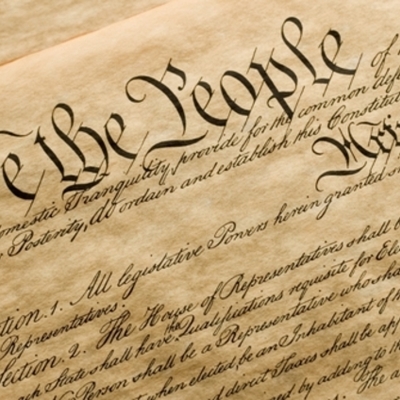 e the People of
omestic Tranquility, provide for the common def
Posterity, do ordain and establish this Constitut
Arti
tion. 1. All legislative Powers herein granted s
Representatives.
Section. 2. The House of Representatives shall b
ach State shall have the Qualifications requisite for Ele
No Person shall be a Representative who sha
when elected, be an Inhabitant of t
d direct Taxes shall be ap
d by adding to th
The a